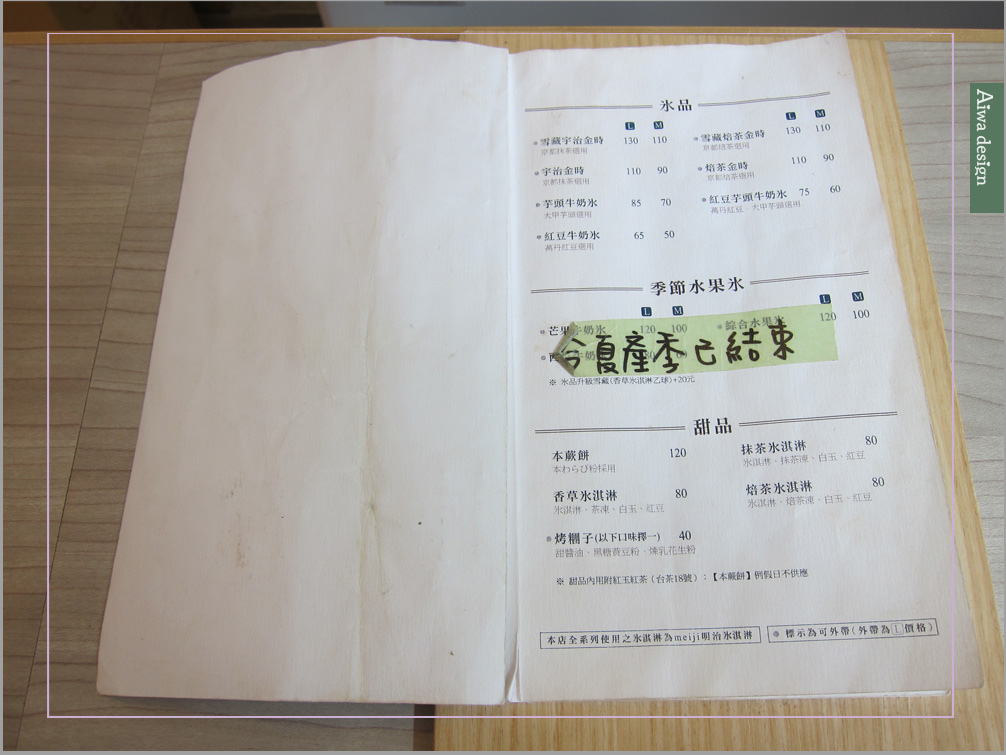 氷品
L M L M
雪藏宇治金時 130 110
京都抹茶選用
雪藏焙茶金時 130 110
京都焙茶選用
宇治金時 110 90
京都抹茶選用
焙茶金時 110 90
京都焙茶選用
芋頭牛奶氷 85 70
大甲芋頭選用
紅豆芋頭牛奶氷 75 60
萬丹紅豆、大甲芋頭選用
紅豆牛奶氷 65 50
萬丹紅豆選用
季節水果氷
L M L M
芒果牛奶氷 120 100
綜合水果氷 120 100
今夏產季已結束
※ 氷品升級雪藏(香草氷淇淋乙球)+20元
甜品
本蕨餅 120
本わらび粉採用
抹茶氷淇淋 80
氷淇淋、抹茶凍、白玉、紅豆
香草氷淇淋 80
氷淇淋、茶凍、白玉、紅豆
焙茶氷淇淋 80
氷淇淋、焙茶凍、白玉、紅豆
烤糰子(以下口味擇一) 40
甜醬油、黑糖黃豆粉、煉乳花生粉
※ 甜品內用附紅玉紅茶(台茶18號);【本蕨餅】例假日不供應
本店全系列使用之氷淇淋為meiji明治氷淇淋
標示為可外帶(外帶為L價格)
Aiwa design